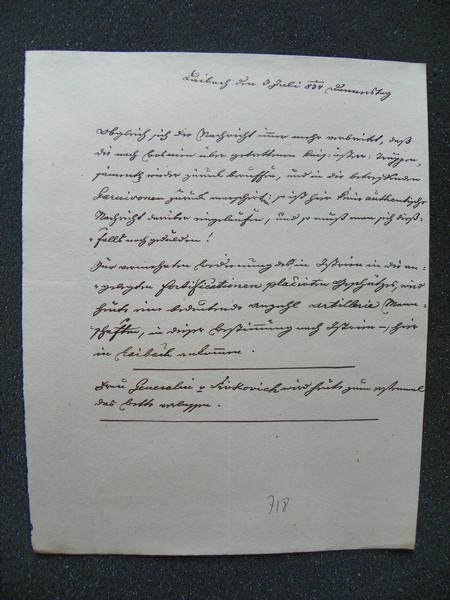 Laibach den 3 Juli 834 Donnerstag
Obgleich sich die Nachricht immer mehr verbreitet, daß
die nach Bosnien über getrettenen kais: österr: Truppen,
zurück beruffen, und in die betreffenden
Garnisonen zurück marschirt; so ist hier keine authentische
Nachricht darüber eingelaufen, und so muß man sich dieß-
falls noch gedulden!
Zur vermehrten Bedienung des in Istrien in die an-
gelegten Fortificationen placirten Geschützes, wird
heute eine bedeutende Anzahl Artillerie Mann-
schaften, in dieser Bestimmung nach Istrien –, hier
in Laibach ankommen.
Frau Generalin v wird heute zum erstenmal
das Bette verlassen.
718